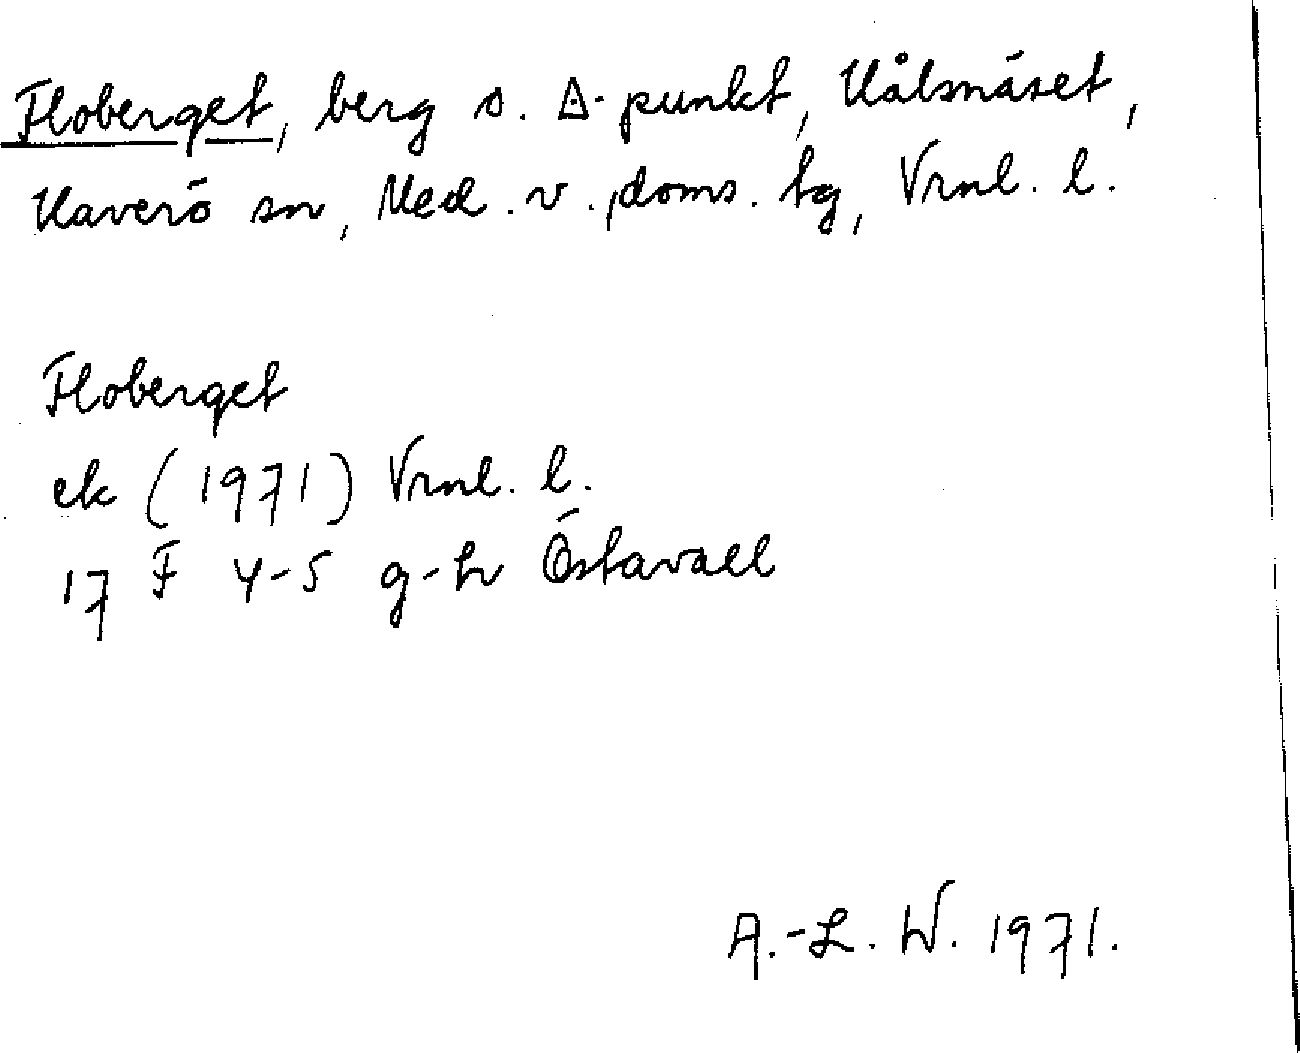 Floberget, berg s. Δ-punkt, Kålsnäset,
Haverö sn, Med. v. doms. tg, Vrnl. l.
Floberget
ek (1971) Vrnl. l.
17 F 4-5 g-h Östavall
A.-L. W. 1971.